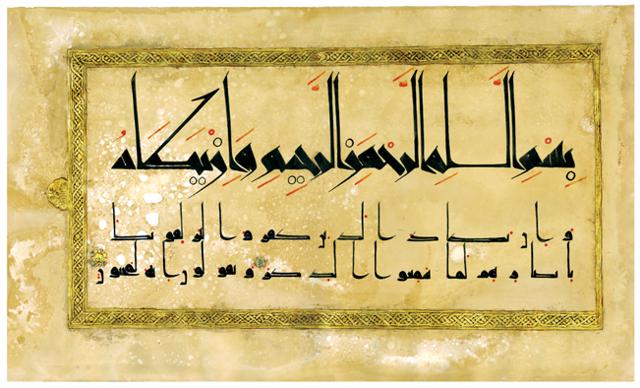 بسم الله الرحمن الرحيم وان يكاد
وان يكاد الذين كفروا ليزلقونك
بابصارهم لما سمعوا الذكر ويقولون انه لمجنون